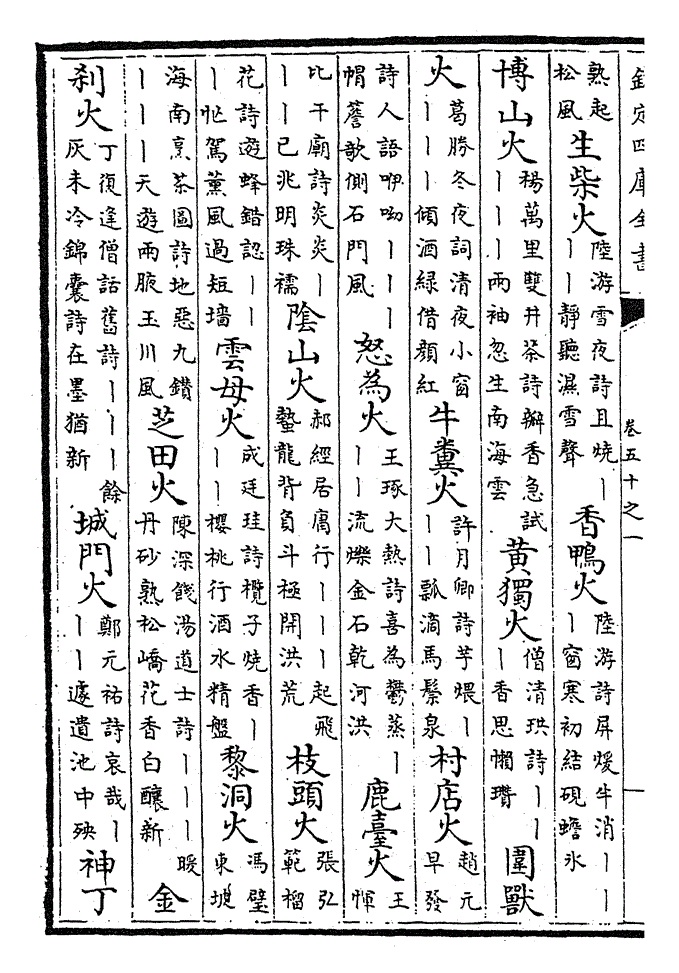 欽定四庫全書
卷五十之一
熟起
松風
生柴火
陸游雪夜詩且燒丨
丨丨靜聽濕雪聲
香鴨火
陸游詩屏煖牛消丨丨
丨窗寒初結硯蟾冰
博山火
楊萬里雙井茶詩瓣香急試
丨丨丨兩袖忽生南海雲
黃獨火
僧清珙詩丨丨
丨香思懶瓚
圍獸
火
葛勝冬夜詞清夜小窗
丨丨丨傾酒綠借顏紅
牛糞火
許月卿詩芋煨丨
丨丨瓢滴馬鬃泉
村店火
趙元
早發
詩人語咿呦丨丨丨
帽簷歌側石門風
怒為火
王琢大熱詩喜為鬱蒸丨
丨丨流爍金石乾河洪
鹿臺火
王
惲
比干廟詩炎炎丨
丨丨已兆明珠襦
陰山火
郝經居庸行丨丨丨起飛
蟄龍背負斗極開洪荒
枝頭火
張弘
範榴
花詩遊蜂錯認丨丨
丨怭駕薰風過短墻
雲母火
成廷珪詩欖子燒香丨
丨丨櫻桃行酒水精盤
黎洞火
馮璧
東坡
海南烹茶圖詩地惡九鑽
丨丨丨天遊兩腋玉川風
芝田火
陳深餞湯道士詩丨丨丨暖
丹砂熟松嶠花香白釀新
金
刹火
丁復逢僧話舊詩丨丨丨餘
灰未冷錦囊詩在墨猶新
城門火
鄭元祐詩哀哉丨
丨丨遽遺池中殃
神丁